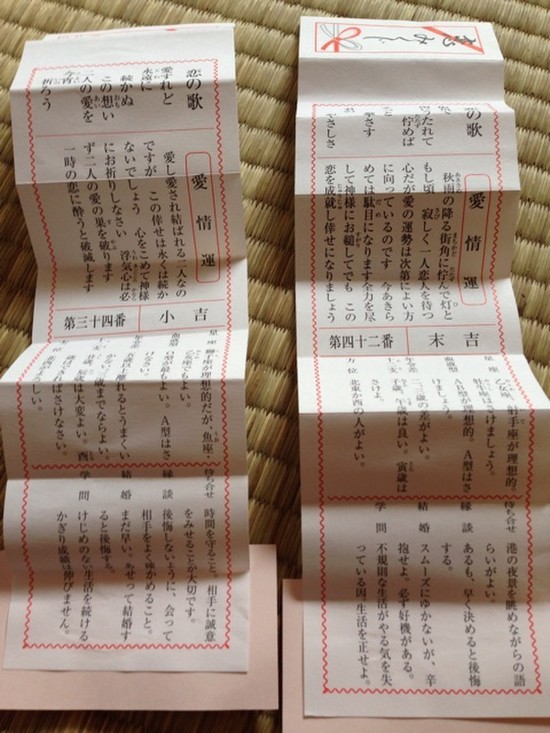 恋の歌
愛すれど
永遠に
続かぬ
この想い
二人の愛を
祈ろう
愛情運
愛し愛され結ばれる二人なの
ですが この倖せは永くは続か
ないでしょう 心をこめて神様
にお祈りしなさい 浮気心は必
ず二人の愛の果を破ります
一時の恋に酔うと破滅します
第三十四番
小吉
星座
獅子座が理想的だが、魚座・
乙女座でもよい。
血液型
A型はさ
けなさい。
年令差
れるとうまくい
歳までならよい。
は大変よい。酉
ばさけなさい。
待ち合せ
時間を守ること。相手に誠意
をみせることが大切です。
縁談
後悔しないように、会って
相手をよく確かめること。
結婚
まだ早い。あせって結婚す
ると後悔する。
学問
けじめのない生活を続ける
かぎり成績は伸びません。
おみくじ
恋の歌
うたれて
佇めば
やさしさ
愛情運
秋雨の降る街角に佇んで灯と
もし頃 寂しく一人恋人を待つ
心だが愛の運勢は次第によい方
に向っているのです 今あきら
めては駄目になります全力を尽
して神様にお縋してでも この
恋を成就し倖せになりましょう
第四十二番
末吉
星座
乙女座、射手座が理想的、
座はさけましょう。
血液型
AB型が理想的。A型はさ
けましょう。
年令差
二、三歳の差がよい。
十二支
子歳、午歳は良い。寅歳は
さけよ。
方位
北東か西の人がよい。
待ち合せ
港の夜景を眺めながらの語
らいがよい。
縁談
あるも、早く決めると後悔
する。
結婚
スムーズにゆかないが、辛
抱せよ。必ず好機がある。
学問
不規則な生活がやる気を失
っている因、生活を正せよ。